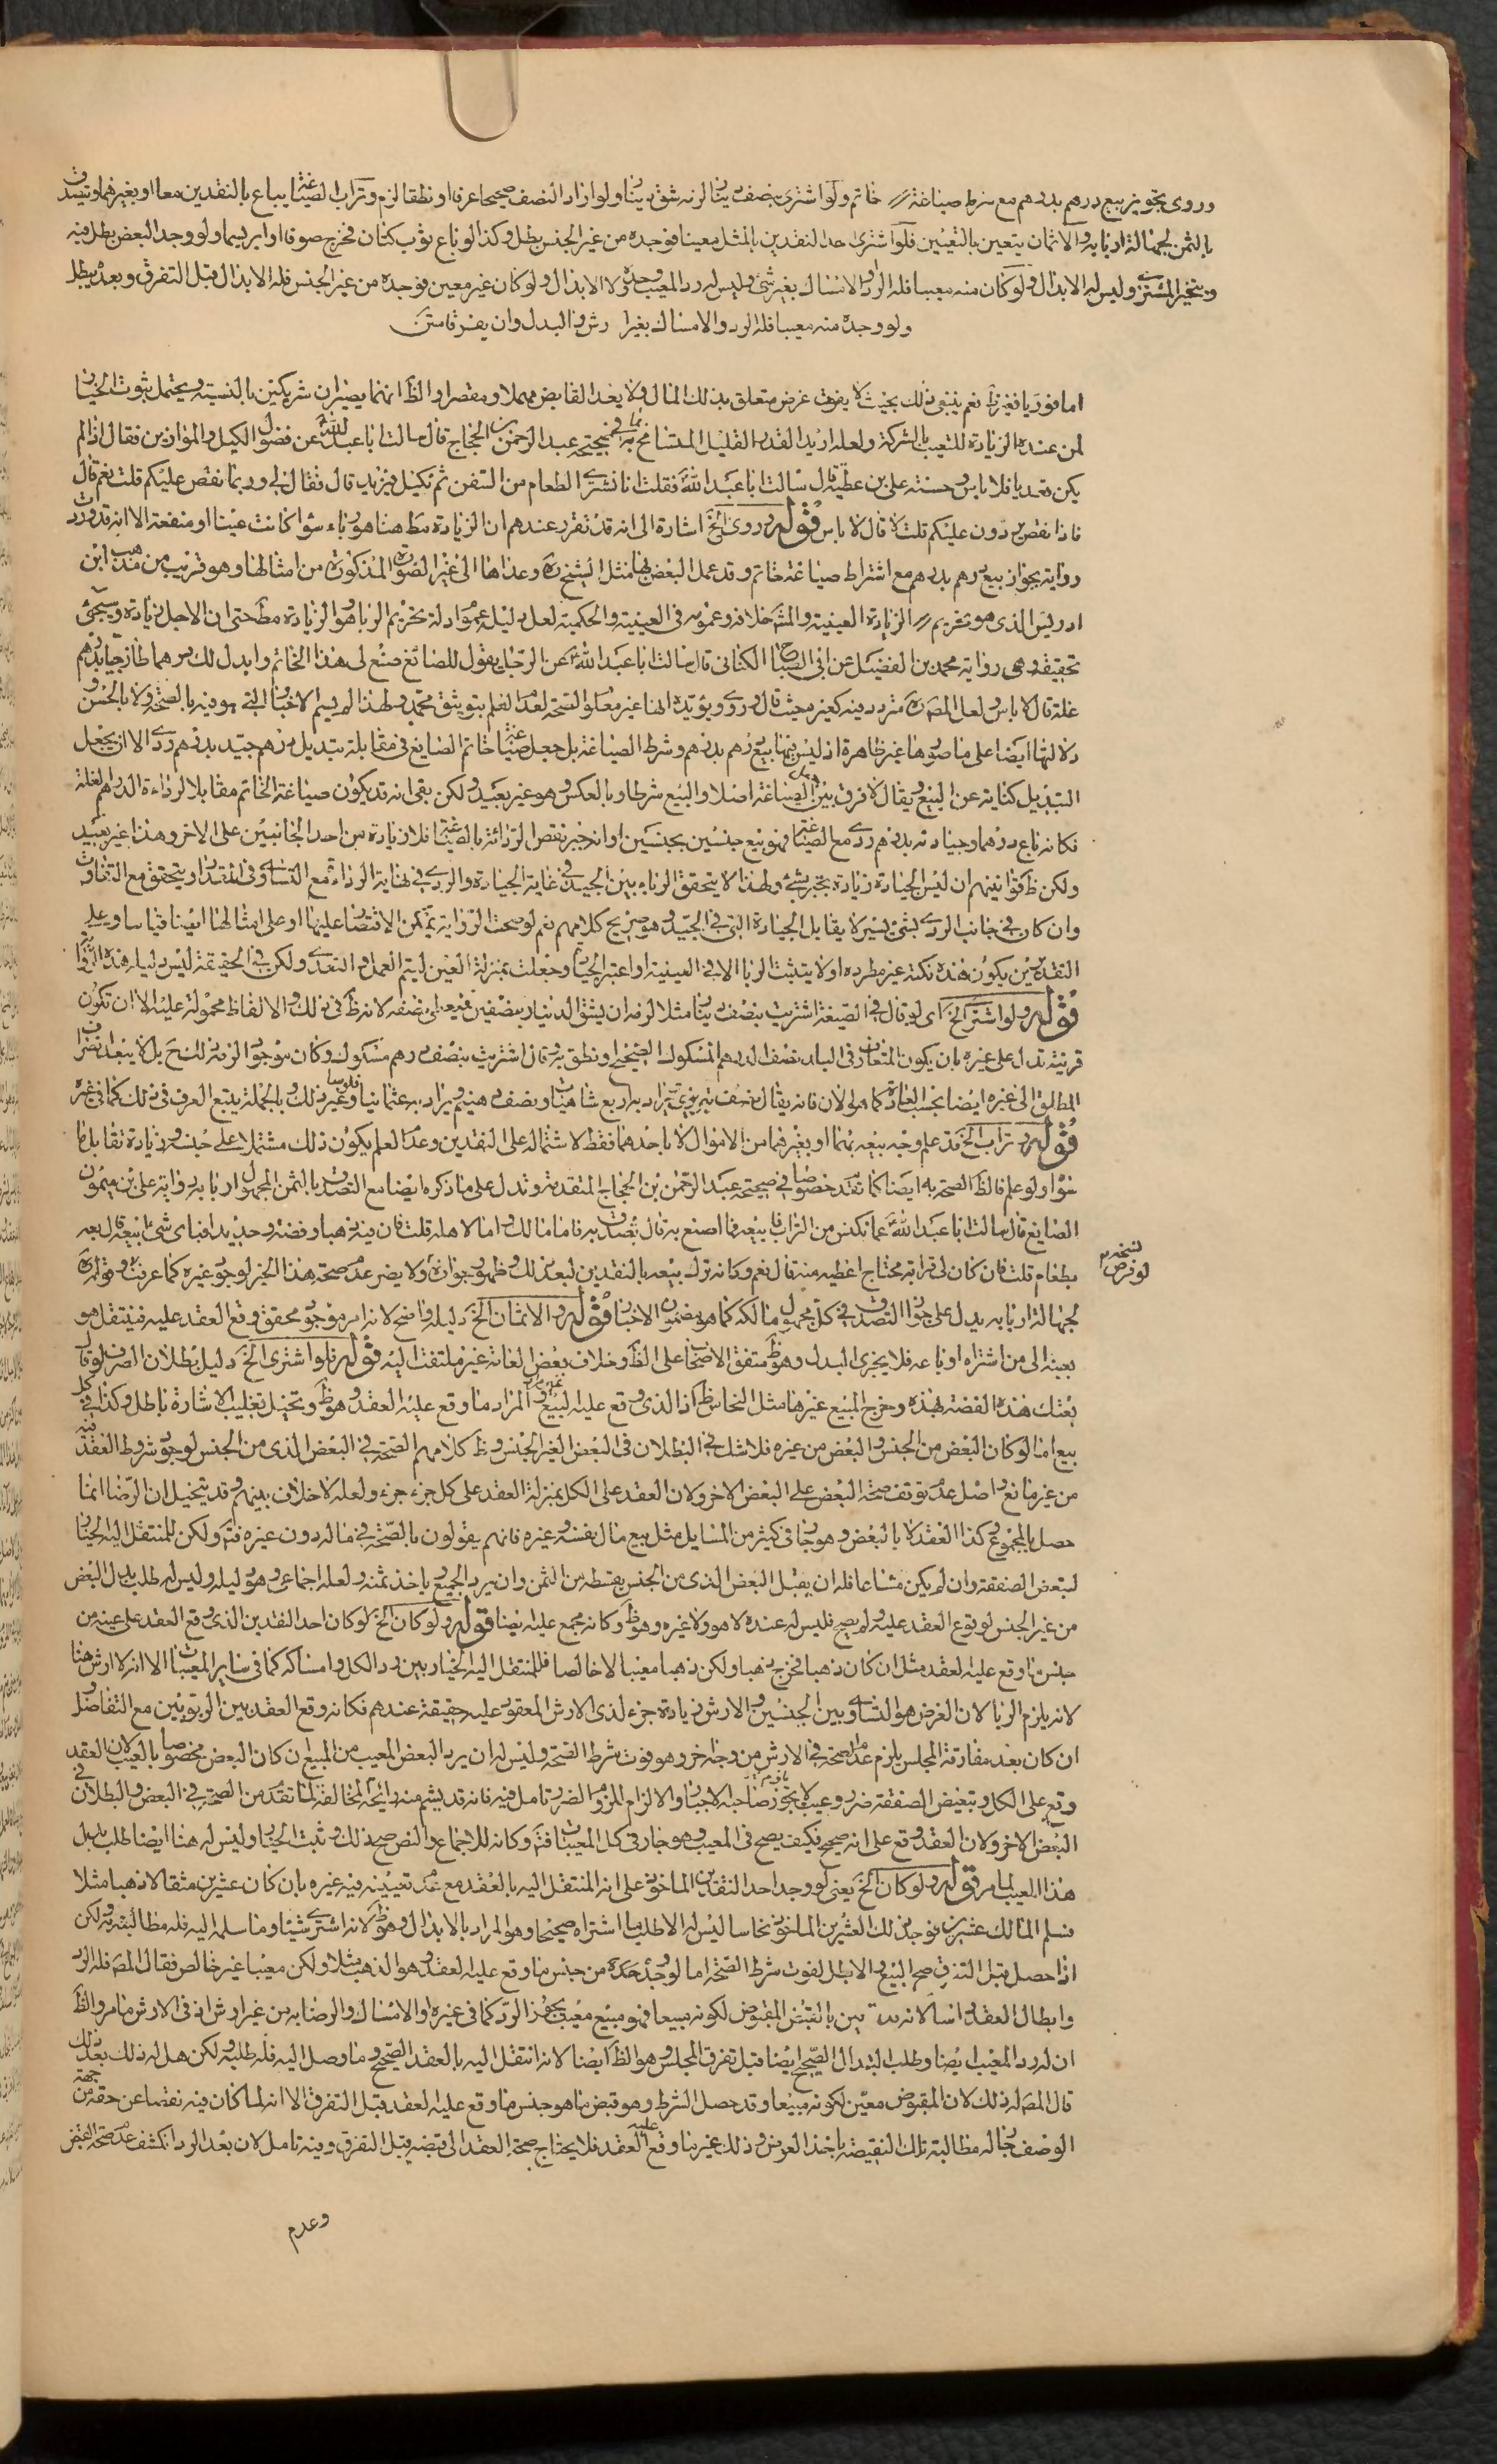 وروى تجويز بيع درهم بدرهم مع شرط صياغة خاتم ولو اشترى بنصف دينار لزمه شق دينار ولو اراد النصف صحيحا عرفا او نطقا لزم وتراب الصياغة يباع بالنقدين معا او بغيرهما ويتصدق
بالثمن لجهالة اربابه والاثمان يتعين بالتعيين فلو اشترى احد النقدين بالمثل معينا فوجده من غير الجنس بطل وكذا لو باع ثوب كتان فخرج صوفا او ابريسما ولو وجد البعض بطل فيه
ويتخير المشتري وليس له الابدال ولو كان منه معيبا فله الرد والامساك بغير شئ وليس له رد المعيب وحده ولا الابدال ولو كان غير معين فوجده من غير الجنس فله الابدال قبل التفرق وبعده يبطل
ولو وجده منه معيبا فله الرد والامساك بغير ارش والبدل وان يفرقا متن
اما فوريا فغير ظ نعم ينبغي ذلك بحيث لا يفوت غرض متعلق بذلك المال ولا يعد القابض مهملا ومقصرا والظ انهما يصيران شريكين بالنسبة ويحتمل ثبوت الخيار
لمن عنده الزيادة للتعيب بالشركة ولعله اريد القدر القليل المتسامح به في صحيحة عبد الرحمن بن الحجاج قال سالت ابا عبد الله عن فضول الكيل والموازين فقال اذا لم
يكن تعديا فلا باس وحسنة علي بن عطية قال سالت ابا عبد الله فقلت انا نشتري الطعام من السفن ثم نكيله فيزيد قال فقال لي وربما نقص عليكم قلت نعم قال
فاذا نقص يردون عليكم قلت لا قال لا باس قوله وروى الخ اشارة الى انه قد تقرر عندهم ان الزيادة مط هنا هو رباء سواء كانت عينا او منفعة الا انه قد وردت
رواية بجواز بيع درهم بدرهم مع اشتراط صياغة خاتم وقد عمل البعض بها مثل الشيخ ره وعداها الى غير الصورة المذكورة من امثالها وهو قريب من مذهب ابن
ادريس الذي هو تحريم الزيادة العينية والمش خلافه وعمومه في العينية والحكمية لعل دليله عموم ادلة تحريم الربا وهو الزيادة مط حتى ان الاجل زيادة وسيجئ
تحقيقه وهي رواية محمد بن الفضيل عن ابي الصباح الكناني قال سالت ابا عبد الله عن الرجل يقول للصائغ صنع لي هذا الخاتم وابدل لك درهما طازجيا بدرهم
غلة قال لا باس ولعل المصره متردد فيه كغيره حيث قال وروي ويؤيده انها غير معلوم الصحة لعدم العلم بتوثيق محمد ولهذا لم يسم الاخبار التي هو فيه بالصحة ولا بالحسن و
دلالتها ايضا على ما صورها غير ظاهرة اذ ليس فيها بيع درهم بدرهم وشرط الصياغة بل جعل صياغة خاتم الصايغ في مقابلة تبديل درهم جيد بدرهم ردي الا ان يجعل
التبديل كناية عن البيع ويقال لا فرق بين جعل الصياغة اصلا والبيع شرطا وبالعكس وهو غير بعيد ولكن بقي انه قد يكون صياغة الخاتم مقابلا لرداءة الدراهم الغلة
فكانه باع درهما وجيادته بدرهم ردي مع الصياغة فهو بيع جنسين بجنسين او انه جبر نقص الرداءة بالصياغة فلا زيادة من احد الجانبين على الاخر وهذا غير بعيد
ولكن ظ قوانينهم ان ليس الجيادة زيادة تجبر بشئ ولهذا لا يتحقق الرباء بين الجيد في غاية الجيادة والردي في نهاية الرداءة مع التساوي في المقدار ويتحقق مع التفاوت
وان كان في جانب الردي بشئ يسير لا يقابل الجيادة التي في الجيد وهو صريح كلامهم نعم لو صحت الرواية يمكن الاقتصار عليها او على امثالها ايضا قياسا وعلى
التقديرين يكون هذه نكتة غير مطردة او لا يتثبت الربا الا في العينية او اعتبر الجيادة وجعلت بمنزلة العين ليتم العمل والتعدي ولكن في الحقيقة ليس دليله هذه الرواية
قوله ولو اشترى الخ اي لو قال في الصيغة اشتريت بنصف دينار مثلا لزم ان يشق الدينار بنصفين فيعطى نصفه لانه ظ في ذلك والالفاظ محمولة عليه الا ان تكون
قرينة تدل على غيره بان يكون المتعارف في البلد نصف الدرهم المسكوك الصحيح او نطق به وقال اشتريت بنصف درهم مسكوك وكان موجودا لزم ذلك ح بل لا يبعد انصراف
المطلق الى غيره ايضا بحسب العادة كما هو الان فانه يقال نصف تبريزي يراد به اربع شاهيات ونصف دهنيم يراد به عثمانيا فلوسا وغير ذلك وبالجملة يتبع العرف في ذلك كما في غيره
قوله وتراب الخ قد علم وجه بيعه بهما او بغيرهما من الاموال لا باحدهما فقط لاشتماله على النقدين وعدم العلم بكون ذلك مشتملا على جنسه وزيادة تقابل ما
سواه ولو علم فالظ الصحة به ايضا كما تقدم خصوصا في صحيحة عبد الرحمن بن الحجاج المتقدمة وتدل على ما ذكره ايضا مع التصدق بالثمن المجهول اربابه رواية علي بن ميمون
الصايغ قال سالت ابا عبد الله عما نكنس من التراب فابيعه فما اصنع به قال تصدق به فاما لك واما لاهله قلت فان فيه ذهبا وفضة وحديدا فباي شئ ابيعه قال بعه
بطعام قلت فان كان لي قرابة محتاج اعطيه منه قال نعم وكانه ترك بيعه بالنقدين لبعد ذلك وظهور جوازه ولا يضر عدم صحة هذا الخبر لوجود غيره كما عرفت وقوله ره
لجهالة اربابه يدل على جواز التصدق في كل مجهول مالكه كما هو مضمون الاخبار قوله والاثمان الخ دليله واضح لانه امر موجود محقق وقع العقد عليه فينتقل هو
بعينه الى من اشتراه او باعه فلا يجزي البدل وهو ظ متفق الاصحاب على الظ وخلاف بعض العامة غير ملتفت اليه قوله فلو اشترى الخ دليل بطلان الصرف لو قال
بعتك هذه الفضة بهذه وخرج المبيع غيرها مثل النحاس ظ اذ الذي وقع عليه البيع غير المراد وما وقع عليه العقد وهو ظ وتخيل تغليب الاشارة باطل وكذا في كل
بيع اما لو كان البعض من الجنس والبعض من غيره فلا شك في البطلان في البعض الغير الجنس وظ كلامهم الصحة في البعض الذي من الجنس لوجود شروط العقد فيه
من غير مانع واصل عدم توقف صحة البعض على البعض الاخر ولان العقد على الكل بمنزلة العقد على كل جزء جزء ولعله لا خلاف بينهم وقد يتخيل ان الرضا انما
حصل بالمجموع وكذا العقد لا بالبعض وهو جار في كثير من المسايل مثل بيع مال نفسه وغيره فانهم يقولون بالصحة في ماله دون غيره فتم ولكن للمنتقل اليه الخيار
لتبعض الصفقة وان لم يكن مشاعا فله ان يقبل البعض الذي من الجنس بقسطه من الثمن وان يرد الجميع وياخذ ثمنه ولعله اجماعي وهو دليله وليس له طلب بدل البعض
من غير الجنس لوقوع العقد عليه ولم يصح فليس له عنده لا هو ولا غيره وهو ظ وكانه مجمع عليه ايضا قوله ولو كان الخ لو كان احد النقدين الذي وقع العقد على عينه من
جنس ما وقع عليه العقد مثل ان كان ذهبا فخرج ذهبا ولكن ذهبا معيبا لا خالصا فللمنتقل اليه الخيار بين رد الكل وامساكه كما في ساير المعيبات الا انه لا ارش هنا
لانه يلزم الربا لان الغرض هو التساوي بين الجنسين والارش زيادة جزء لذي الارش المعقود عليه حقيقة عندهم فكانه وقع العقد بين الربويين مع التفاضل و
ان كان بعد مفارقة المجلس يلزم عدم الصحة في الارش من وجه اخر وهو فوت شرط الصحة وليس له ان يرد البعض المعيب من المبيع ان كان البعض مخصوصا بالعيب لان العقد
وقع على الكل وتبعيض الصفقة ضرر وعيب لا يجوز صاحبه الاجبار والالزام للزوم الضرر تامل فيه فانه قد يشم منه رائحة المخالفة لما تقدم من الصحة في البعض والبطلان في
البعض الاخر ولان العقد وقع على انه صحيح فكيف يصح في المعيب وهو جار في كل المعيبات فتم وكانه للاجماع والنص صح ذلك وثبت الخيار وليس له هنا ايضا طلب بدل
هذا المعيب لما مر قوله ولو كان الخ يعني لو وجد احد النقدين الماخوذ على انه المنتقل اليه بالعقد مع عدم تعيينه فيه غيره بان كان عشرين مثقالا ذهبا مثلا
فسلم المالك عشرين فوجد ذلك العشرين الماخوذ نحاسا ليس له الا طلب ما اشتراه صحيحا وهو المراد بالابدال وهو ظ لانه اشترى شيئا وما سلمه اليه فله مطالبته به ولكن
اذا حصل قبل التفرق صح البيع والا بطل لفوت شرط الصحة اما لو وجد احده من جنس ما وقع عليه العقد وهو الذهب مثلا ولكن معيبا غير خالص فقال المصره فله الرد
وابطال العقد راسا لانه تعين بالقبض المقبوض لكونه مبيعا فهو مبيع معيب يجوز الرد كما في غيره او الامساك والرضا به من غير ارش اذ في الارش ما مر والظ
ان له رد المعيب ايضا وطلب البدل الصحيح ايضا قبل تفرق المجلس وهو الظ ايضا لانه انتقل اليه بالعقد الصحيح وما وصل اليه فله طلبه ولكن هل له ذلك بعد ذلك
قال المصره له ذلك لان المقبوض معين لكونه مبيعا وقد حصل الشرط وهو قبض ما هو جنس ما وقع عليه العقد قبل التفرق الا انه لما كان فيه نقصا عن حقه من جهة
الوصف جاز له مطالبة تلك النقيصة باخذ العوض وذلك غير ما وقع عليه العقد فلا يحتاج صحة العقد الى قبضه قبل التفرق وفيه تامل لان بعد الرد انكشف عدم صحة القبض
وعدم
نسخة م
لو فرض